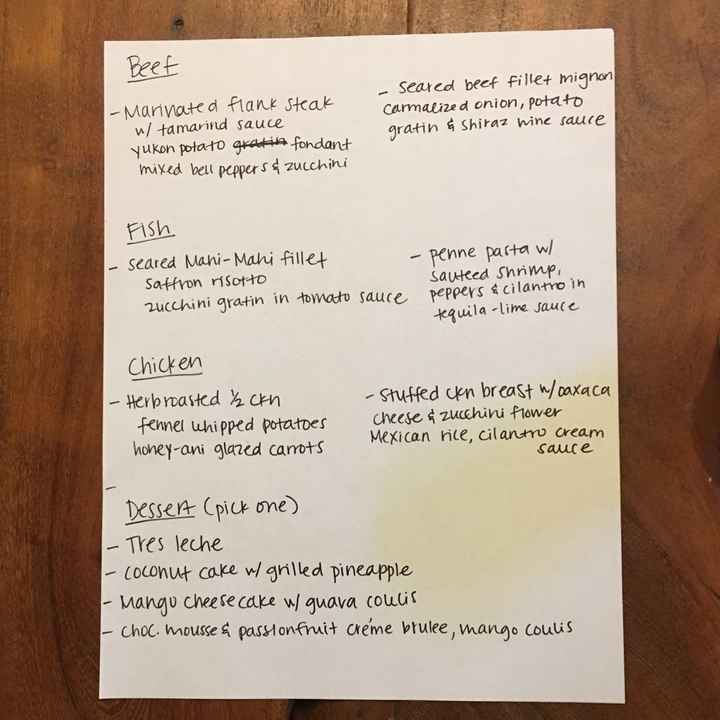 Beef
- Marinated flank steak
w/ tamarind sauce
yukon potato gratin fondant
mixed bell peppers & zucchini
- Seared beef fillet mignon
carmalized onion, potato
gratin & Shiraz wine sauce
Fish
- seared Mahi-Mahi fillet
saffron risotto
zucchini gratin in tomato sauce
- penne pasta w/
sauteed shrimp,
peppers & cilantro in
tequila-lime sauce
Chicken
- Herbroasted ½ ckn
fennel whipped potatoes
honey-ani glazed carrots
- stuffed ckn breast w/oaxaca
cheese & zucchini flower
Mexican rice, cilantro cream
sauce
-
Dessert (pick one)
- Tres leche
- coconut cake w/ grilled pineapple
- Mango cheesecake w/ guava coulis
- choc. mousse & passionfruit créme brulee, mango coulis